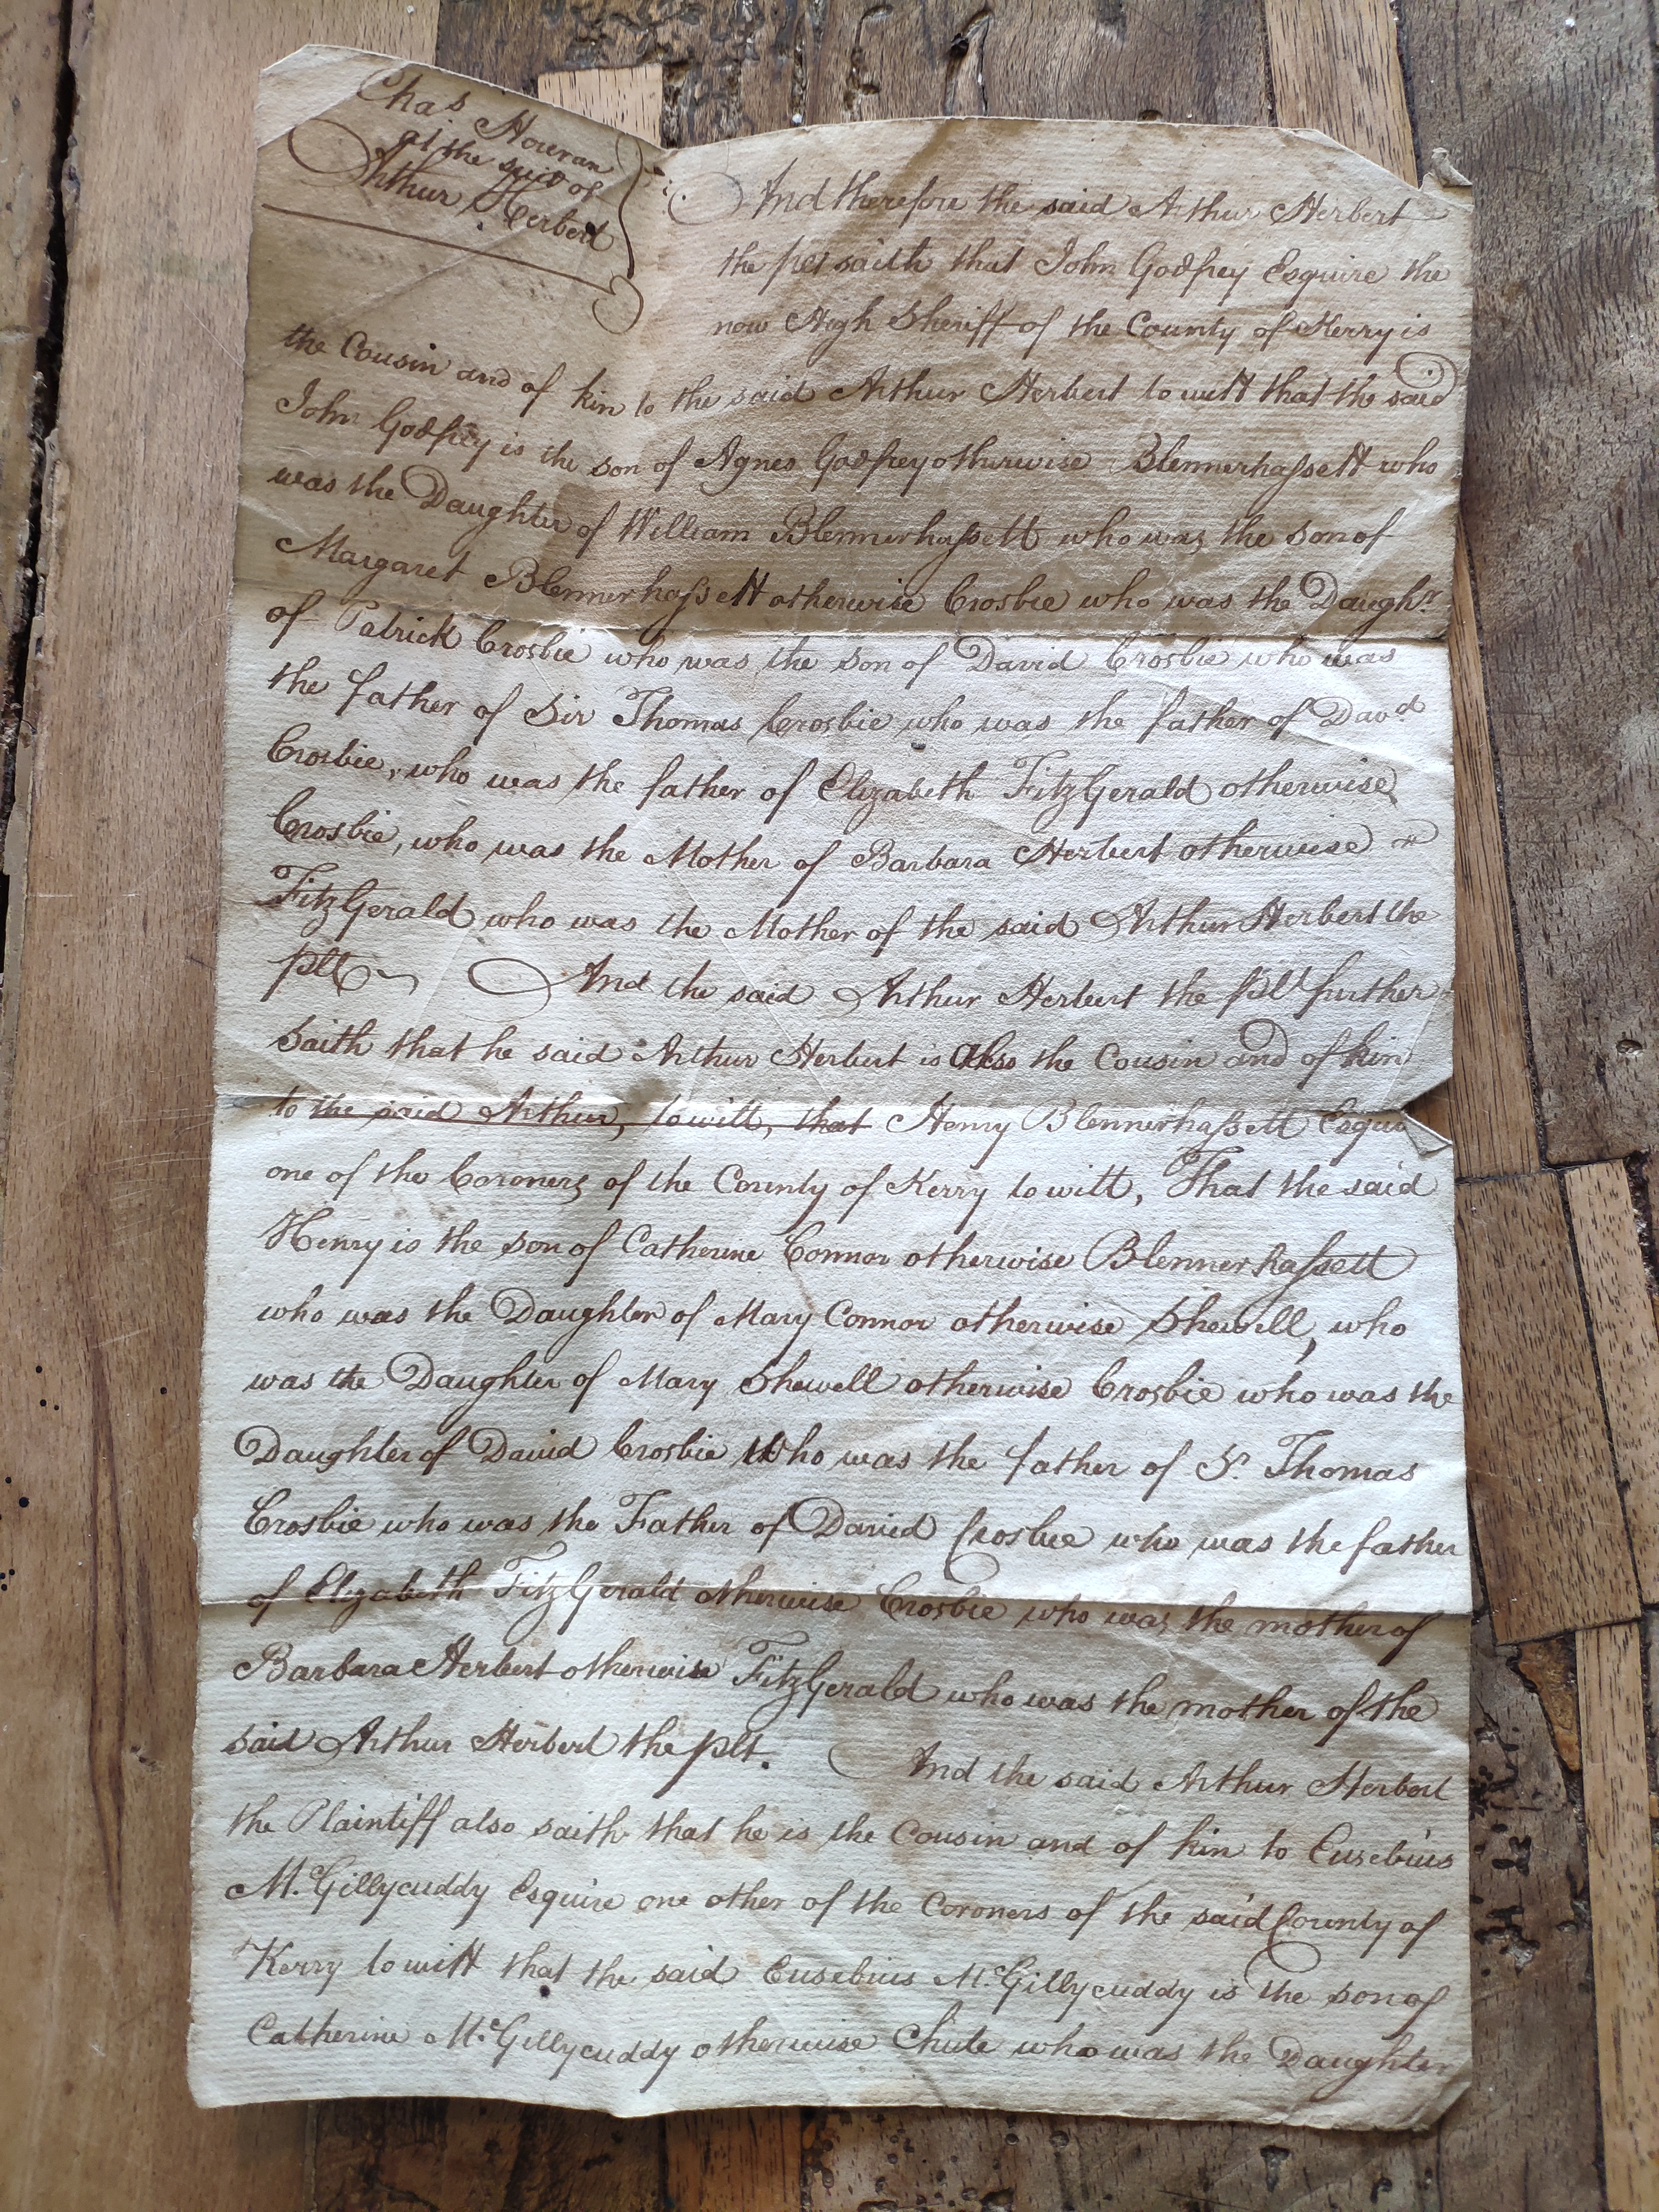 Chas. Houran
at the suit of
Arthur Herbert
And therefore the said Arthur Herbert
the plt saith that John Godfrey Esquire the
now High Sheriff of the County of Kerry is
the Cousin and of kin to the said Arthur Herbert to witt that the said
John Godfrey is the son of Agnes Godfrey otherwise Blennerhassett who
was the Daughter of William Blennerhassett who was the son of
Margaret Blennerhassett otherwise Crosbie who was the Daughr.
of Patrick Crosbie who was the son of David Crosbie who was
the father of Sir Thomas Crosbie who was the father of Davd
Crosbie, who was the father of Elizabeth FitzGerald otherwise
Crosbie, who was the Mother of Barbara Herbert otherwise
FitzGerald who was the Mother of the said Arthur Herbert the
plt And the said Arthur Herbert the plt further
saith that he said Arthur Herbert is also the Cousin and of kin
to the said Arthur, to witt, that Henry Blennerhassett
one of the Coroners of the County of Kerry to witt, That the said
Henry is the son of Catherine Connor otherwise Blennerhassett
who was the Daughter of Mary Connor otherwise Shewell, who
was the Daughter of Mary Shewell otherwise Crosbie who was the
Daughter of David Crosbie Who was the father of Sr. Thomas
Crosbie who was the Father of David Crosbie who was the father
of Elizabeth FitzGerald otherwise Crosbie who was the mother of
Barbara Herbert otherwise FitzGerald who was the mother of the
said Arthur Herbert the plt. And the said Arthur Herbert
the Plaintiff also saith that he is the Cousin and of kin to Eusebius
Mc.Gillycuddy Esquire one other of the Coroners of the said County of
Kerry to witt that the said Eusebius Mc.Gillycuddy is the son of
Catherine Mc.Gillycuddy otherwise Chute who was the Daughter